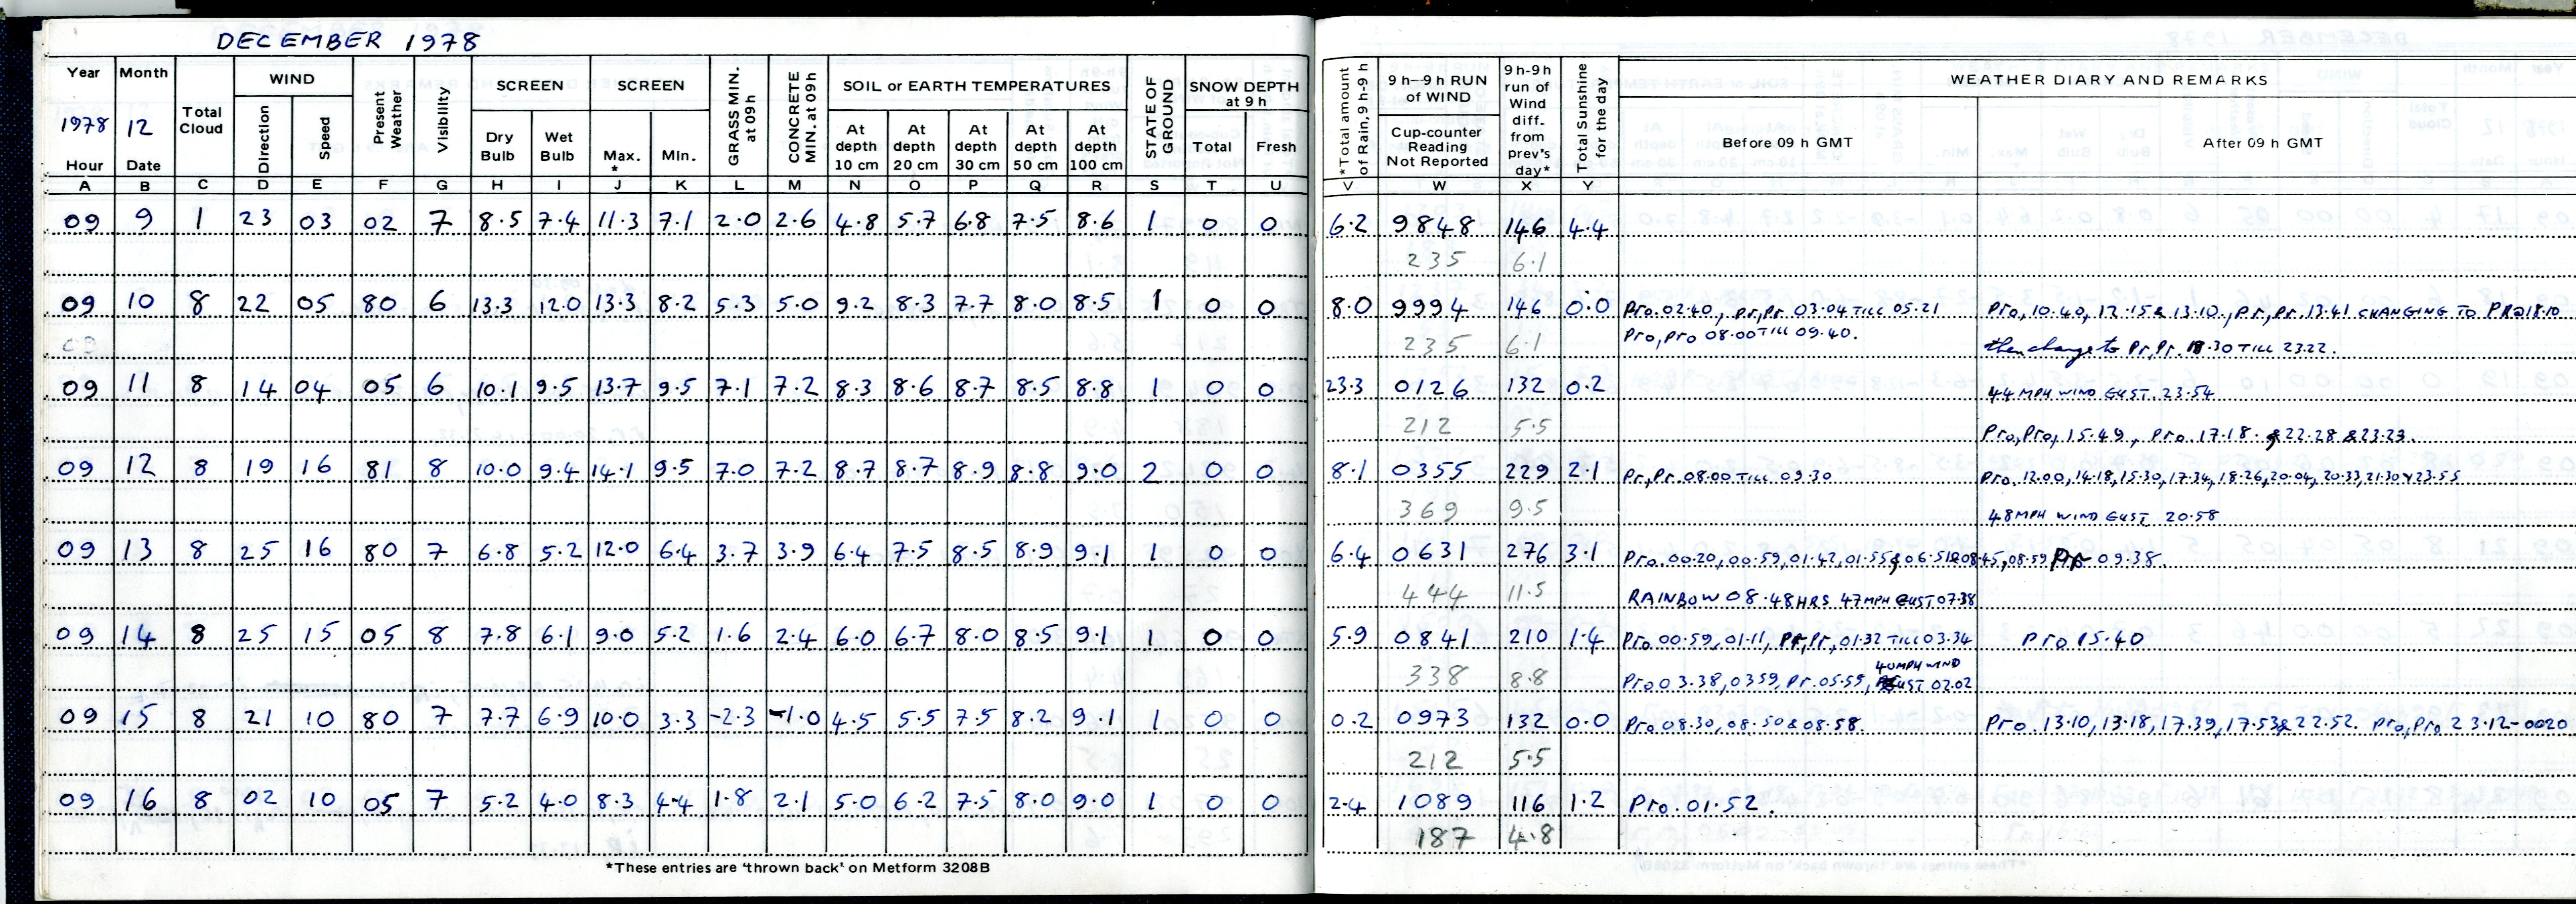 DECEMBER 1978
Year Month Total Cloud WIND Present Weather Visibility SCREEN SCREEN GRASS MIN. at 09h CONCRETE MIN. at 09h SOIL or EARTH TEMPERATURES STATE OF GROUND SNOW DEPTH at 9 h *Total amount of Rain, 9h-9h 9 h–9 h RUN of WIND 9 h-9h run of Wind diff. from prev's day* Total Sunshine for the day WEATHER DIARY AND REMARKS
1978 12 Direction Speed Dry Bulb Wet Bulb Max. * Min. At depth 10 cm At depth 20 cm At depth 30 cm At depth 50 cm At depth 100 cm Total Fresh Cup-counter Reading Not Reported Before 09 h GMT After 09 h GMT
Hour Date
A B C D E F G H I J K L M N O P Q R S T U V W X Y
09 9 1 23 03 02 7 8.5 7.4 11.3 7.1 2.0 2.6 4.8 5.7 6.8 7.5 8.6 1 0 0 6.2 9848 146 4.4
235 6.1
09 10 8 22 05 80 6 13.3 12.0 13.3 8.2 5.3 5.0 9.2 8.3 7.7 8.0 8.5 1 0 0 8.0 9994 146 0.0 Pro. 02.40, pr,pr 03.04 TILL 05.21 Pro, 10.40, 12.15 & 13.10, pr, pr. 13.41 CHANGING TO PRO 18.10
235 6.1 Pro, pro 08.00 TILL 09.40. then change to Pr, Pr. 18.30 TILL 23.22.
09 11 8 14 04 05 6 10.1 9.5 13.7 9.5 7.1 7.2 8.3 8.6 8.7 8.5 8.8 1 0 0 23.3 0126 132 0.2 44 MPH WIND GUST. 23.54
212 5.5 Pro, Pro, 15.49, Pro. 17.18. & 22.28 & 23.23.
09 12 8 19 16 81 8 10.0 9.4 14.1 9.5 7.0 7.2 8.7 8.7 8.9 8.8 9.0 2 0 0 8.1 0355 229 2.1 Pr, Pr. 08.00 TILL 09.30 Pro. 12.00, 14.18, 15.30, 17.34, 18.26, 20.04, 20.33, 21.30 & 23.55
369 9.5 48 MPH WIND GUST 20.58
09 13 8 25 16 80 7 6.8 5.2 12.0 6.4 3.7 3.9 6.4 7.5 8.5 8.9 9.1 1 0 0 6.4 0631 276 3.1 Pro. 00.20, 00.59, 01.42, 01.55 & 06.51 & 08.45, 08.59 Pr 09.38.
444 11.5 RAINBOW 08.48 HRS 47 MPH GUST 07.38
09 14 8 25 15 05 8 7.8 6.1 9.0 5.2 1.6 2.4 6.0 6.7 8.0 8.5 9.1 1 0 0 5.9 0841 210 1.4 Pro. 00.59, 01.11, Pr, Pr, 01.32 TILL 03.34 Pro 15.40
338 8.8 Pro 03.38, 0359, Pr. 05.59, 40 MPH WIND GUST 02.02
09 15 8 21 10 80 7 7.7 6.9 10.0 3.3 -2.3 -1.0 4.5 5.5 7.5 8.2 9.1 1 0 0 0.2 0973 132 0.0 Pro 08.30, 08.50 & 08.58. Pro. 13.10, 13.18, 17.39, 17.53 & 22.52. Pro, Pro 23.12-0020
212 5.5
09 16 8 02 10 05 7 5.2 4.0 8.3 4.4 1.8 2.1 5.0 6.2 7.5 8.0 9.0 1 0 0 2.4 1089 116 1.2 Pro. 01.52.
187 4.8
*These entries are 'thrown back' on Metform 3208B